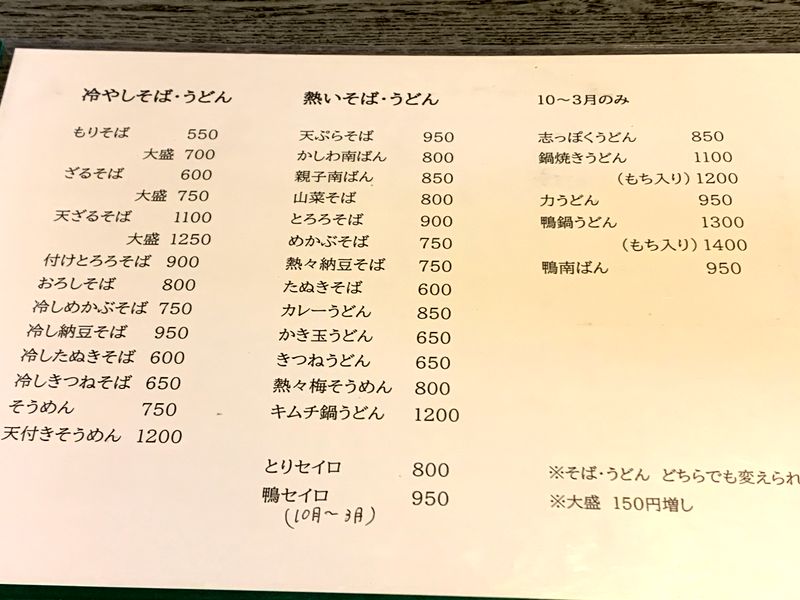 冷やしそば・うどん
もりそば 550
大盛 700
ざるそば 600
大盛 750
天ざるそば 1100
大盛 1250
付けとろろそば 900
おろしそば 800
冷しめかぶそば 750
冷し納豆そば 950
冷したぬきそば 600
冷しきつねそば 650
そうめん 750
天付きそうめん 1200
熱いそば・うどん
天ぷらそば 950
かしわ南ばん 800
親子南ばん 850
山菜そば 800
とろろそば 900
めかぶそば 750
熱々納豆そば 750
たぬきそば 600
カレーうどん 850
かき玉うどん 650
きつねうどん 650
熱々梅そうめん 800
キムチ鍋うどん 1200
とりセイロ 800
鴨セイロ 950
(10月〜3月)
10〜3月のみ
志っぽくうどん 850
鍋焼きうどん 1100
(もち入り) 1200
力うどん 950
鴨鍋うどん 1300
(もち入り) 1400
鴨南ばん 950
※そば・うどん どちらでも変えられ
※大盛 150円増し